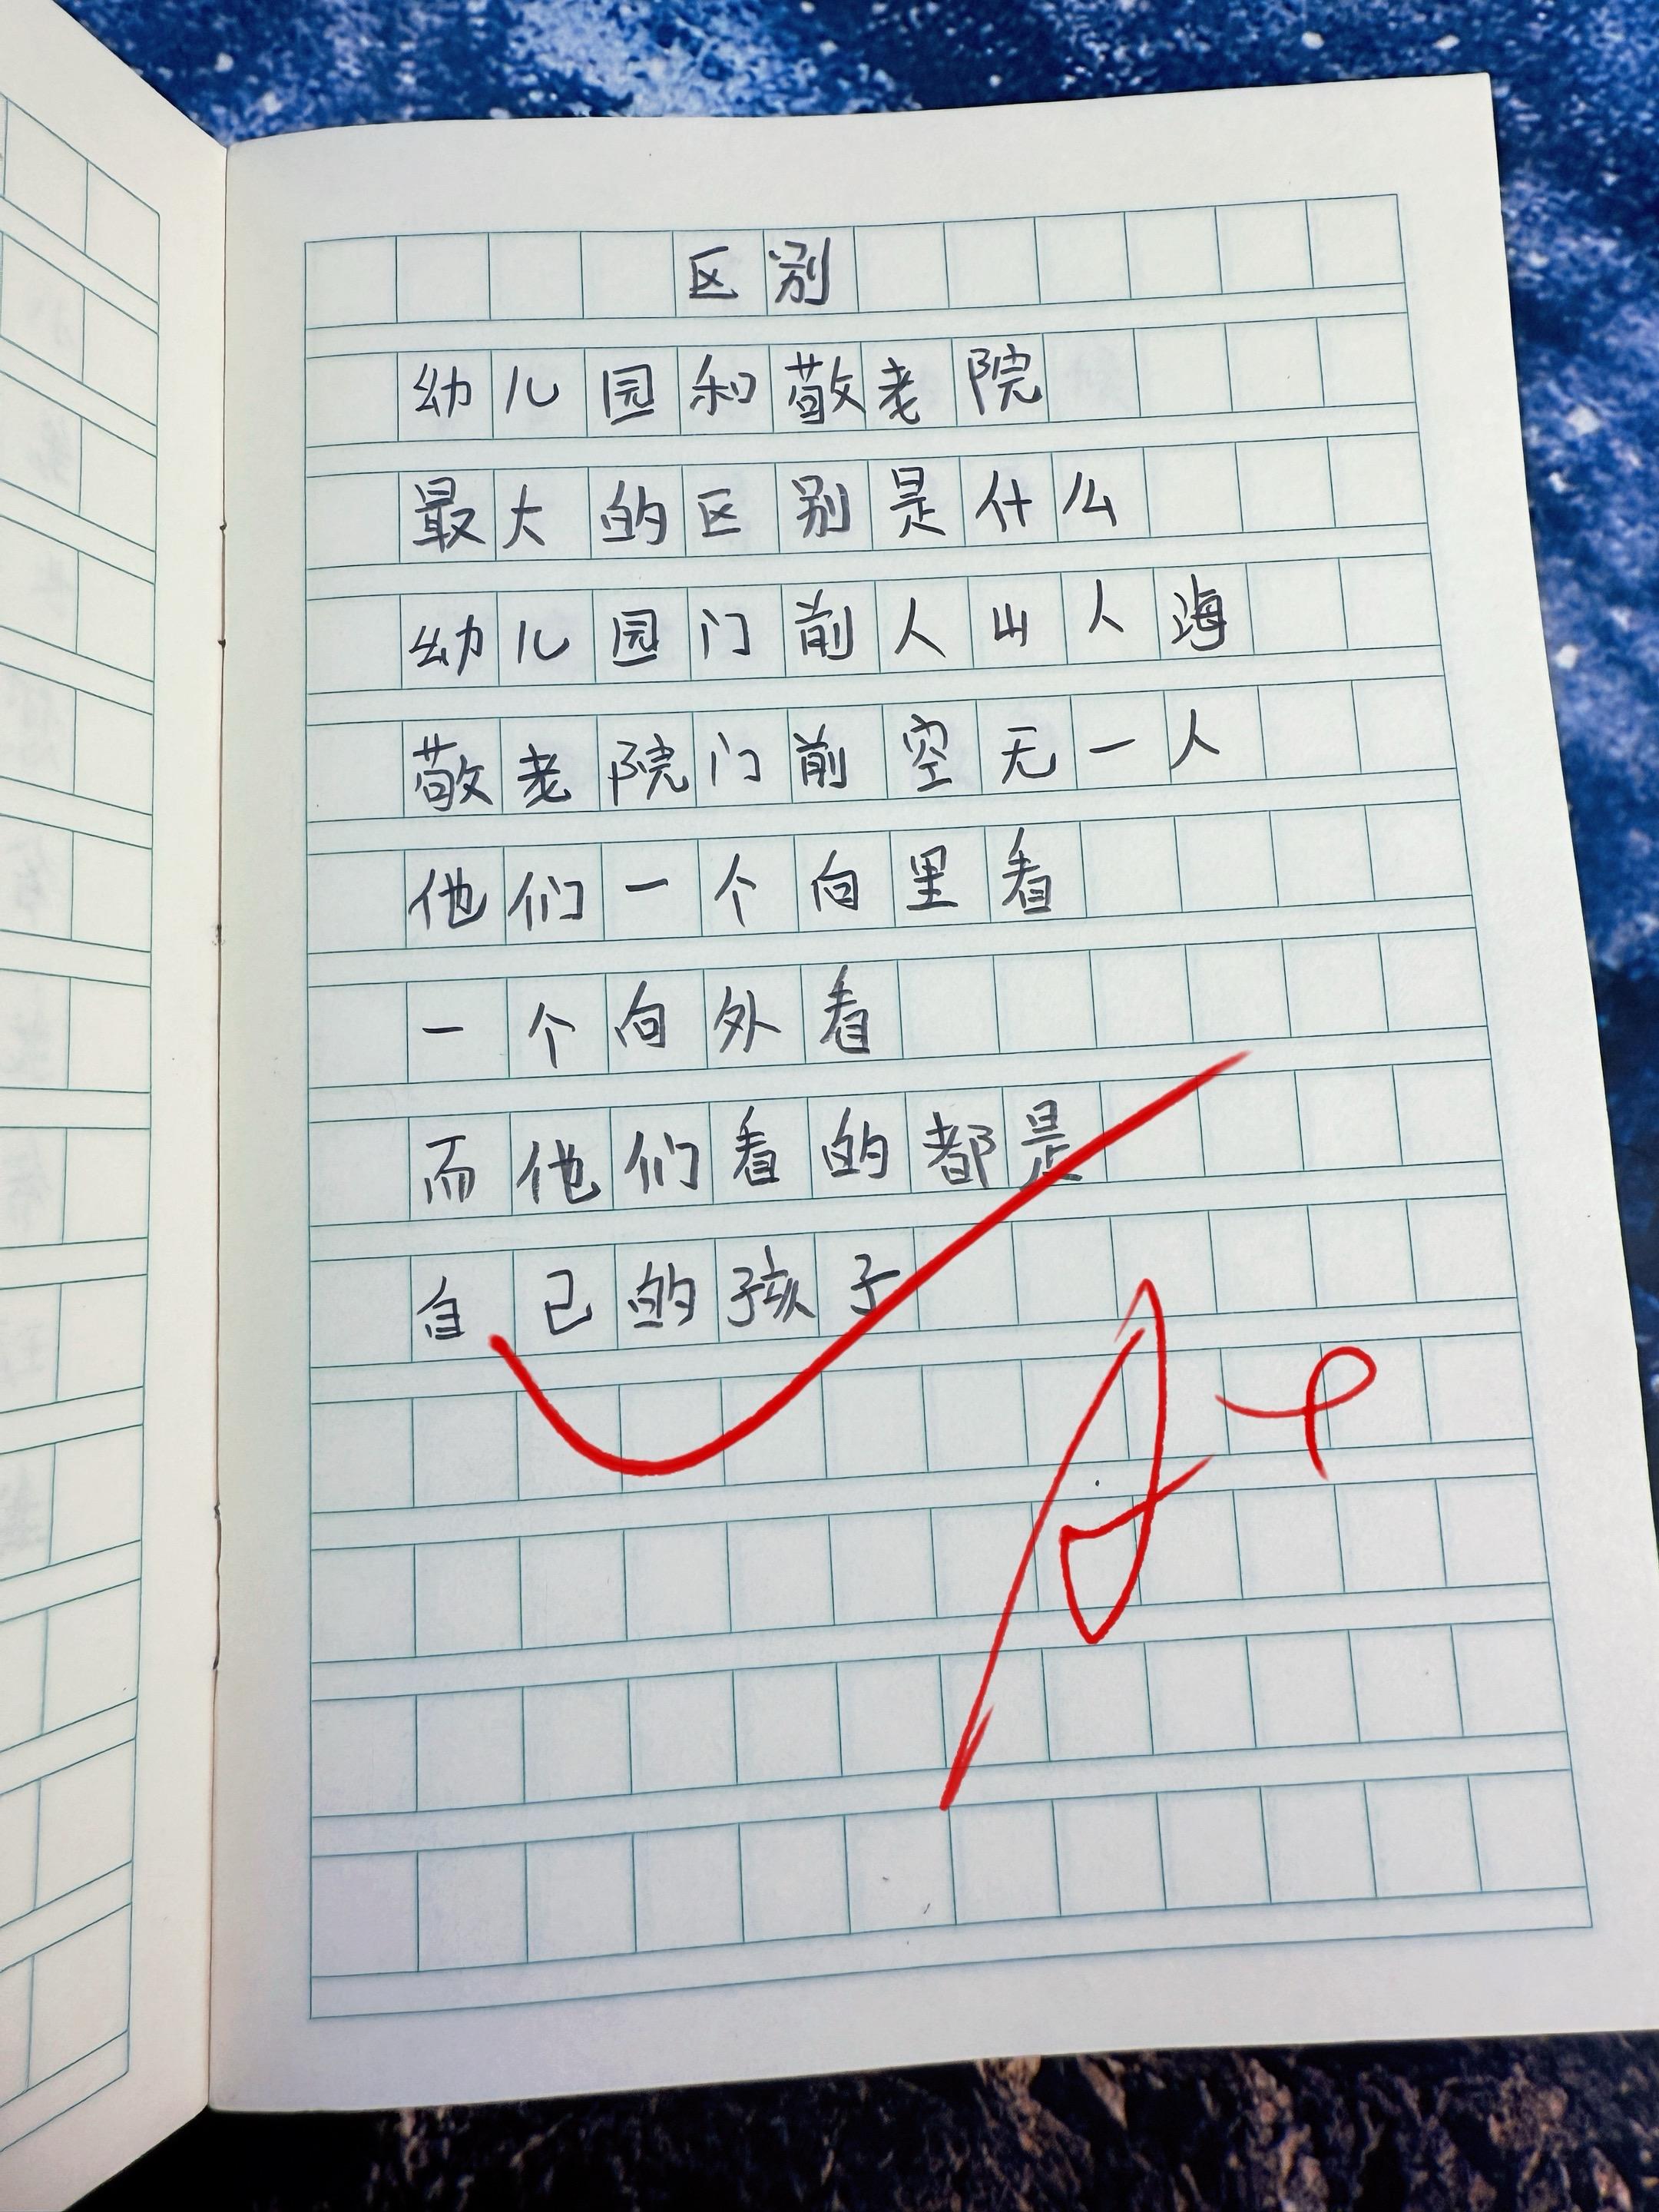 区别
幼儿园和敬老院
最大的区别是什么
幼儿园门前人山人海
敬老院门前空无一人
他们一个向里看
一个向外看
而他们看的都是
自己的孩子
A+